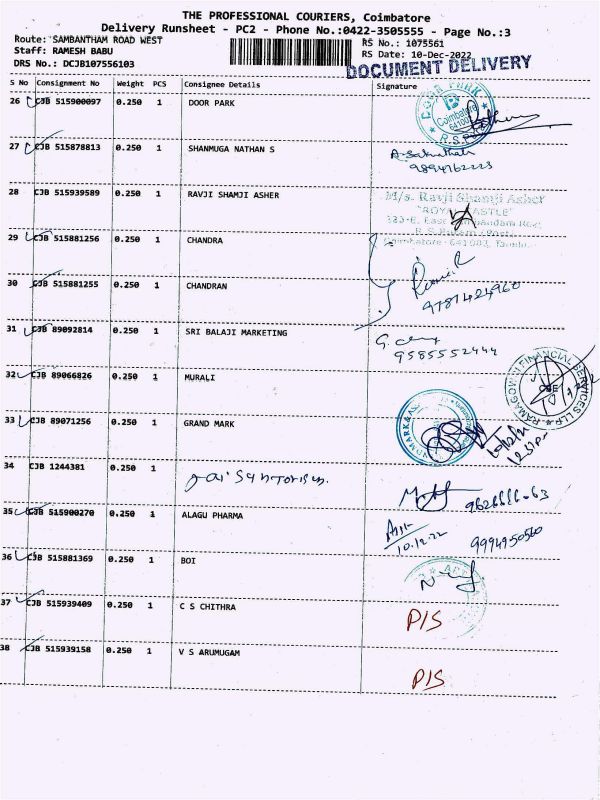 THE PROFESSIONAL COURIERS, Coimbatore
Delivery Runsheet - PC2 - Phone No.:0422-3505555 - Page No.:3
Route: SAMBANTHAM ROAD WEST
RS No.: 1075561
Staff: RAMESH BABU
RS Date: 10-Dec-2022
DRS No.: DCJB107556103
DOCUMENT DELIVERY
S No Consignment No Weight PCS Consignee Details Signature
26 CJB 515900097 0.250 1 DOOR PARK
DOOR PARK
Coimbatore
R.S.
27 CJB 515878813 0.250 1 SHANMUGA NATHAN S
9894762223
28 CJB 515939589 0.250 1 RAVJI SHAMJI ASHER
M/s. Ravji Shamji Asher
"ROYAL CASTLE"
Coimbatore - 641002,
29 CJB 515881256 0.250 1 CHANDRA
30 CJB 515881255 0.250 1 CHANDRAN
9787424960
31 CJB 89092814 0.250 1 SRI BALAJI MARKETING
9585552444
32 CJB 89066826 0.250 1 MURALI
FINANCIAL SERVICES LLP
33 CJB 89071256 0.250 1 GRAND MARK
34 CJB 1244381 0.250 1
35 CJB 515900270 0.250 1 ALAGU PHARMA
10.12.22 9994950560
36 CJB 515881369 0.250 1 BOI
37 CJB 515939409 0.250 1 C S CHITHRA
P/S
38 CJB 515939158 0.250 1 V S ARUMUGAM
P/S